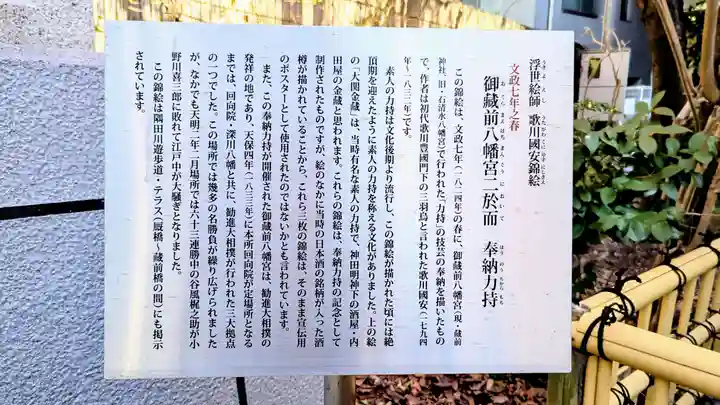 浮世絵師　歌川國安錦絵
うきよえし　うたがわくにやすにしきえ
文政七年之春
御蔵前八幡宮二於而　奉納力持
おくらまえはちまんぐうにおいて　ほうのうちからもち
この錦絵は、文政七年(一八二四年)の春に、御蔵前八幡宮(現・蔵前
神社、旧・石清水八幡宮)で行われた「力持」の技芸の奉納を描いたもの
で、作者は初代歌川豊國門下の三羽烏と言われた歌川國安(一七九四
年～一八三二年)です。
素人の力持は文化後期より流行し、この錦絵が描かれた頃には絶
頂期を迎えたように素人の力持を称える文化がありました。上の絵
の「大関金蔵」は、当時有名な素人の力持で、神田明神下の酒屋・内
田屋の金蔵と思われます。これらの錦絵は、奉納力持の記念として
制作されたものですが、絵のなかに当時の日本酒の銘柄が入った酒
樽が描かれていることから、これら三枚の錦絵は、そのまま宣伝用
のポスターとして使用されたのではないかとも言われています。
また、この奉納力持が開催された御蔵前八幡宮は、勧進大相撲の
発祥の地であり、天保四年(一八三三年)に本所回向院が定場所となる
までは、回向院・深川八幡と共に、勧進大相撲が行われた三大拠点
の一つでした。この場所では幾多の名勝負が繰り広げられました
が、なかでも天明二年二月場所では六十三連勝中の谷風梶之助が小
野川喜三郎に敗れて江戸中が大騒ぎとなりました。
この錦絵は隅田川遊歩道・テラス(厩橋～蔵前橋の間)にも掲示
されています。